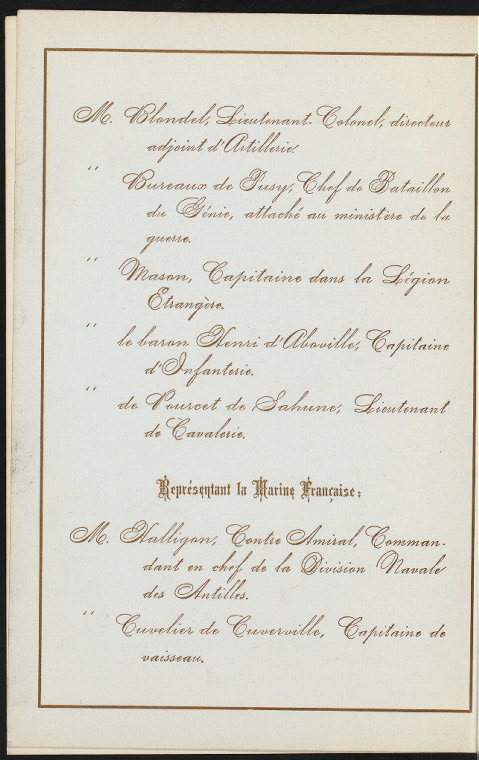 M. Blondel, Lieutenant-Colonel, directeur
adjoint d'Artillerie.
" Bureaux de Pusy, Chef de Bataillon
du Génie, attaché au ministère de la
guerre.
" Mason, Capitaine dans la Légion
Etrangère.
" le baron Henri d'Aboville, Capitaine
d'Infanterie.
" de Pourcet de Sahune, Lieutenant
de Cavalerie.
Représentant la Marine Française:
M. Halligon, Contre Amiral, Comman-
dant en chef de la Division Navale
des Antilles.
" Cuvelier de Cuverville, Capitaine de
vaisseau.